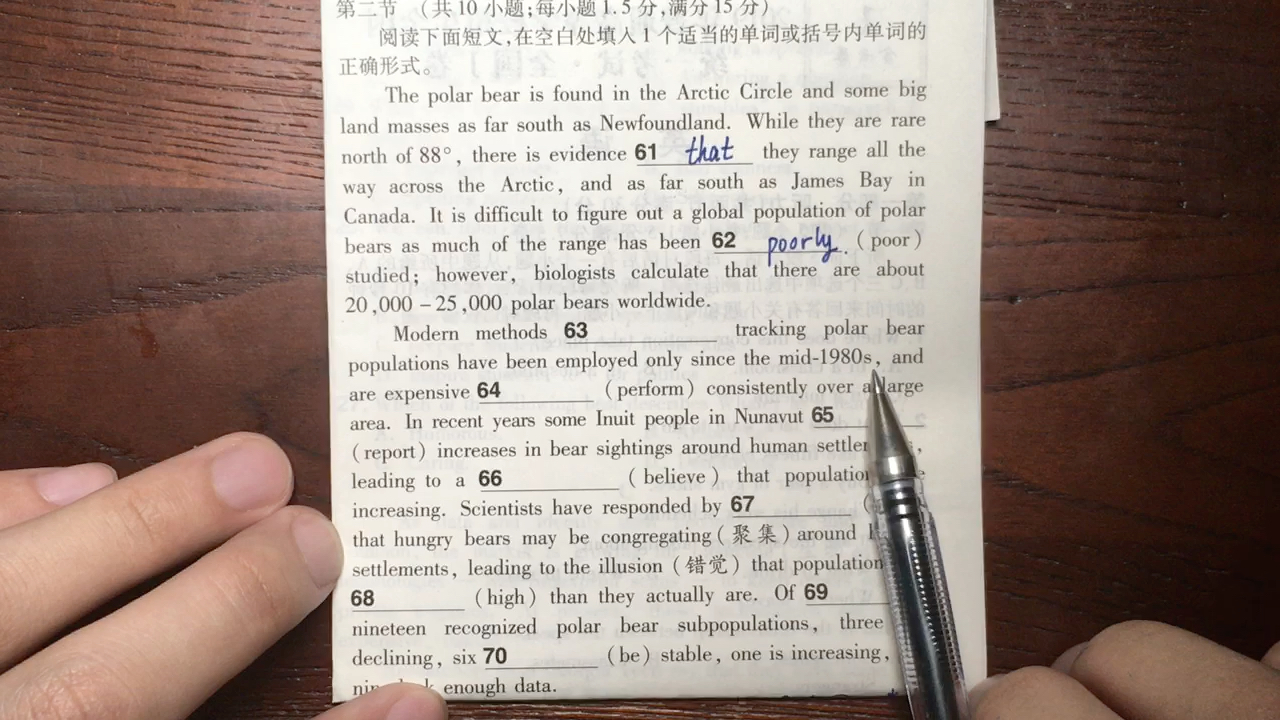 第二节 （共10小题;每小题1.5分,满分15分）
阅读下面短文,在空白处填入1个适当的单词或括号内单词的
正确形式。
The polar bear is found in the Arctic Circle and some big
land masses as far south as Newfoundland. While they are rare
north of 88°, there is evidence 61 that they range all the
way across the Arctic, and as far south as James Bay in
Canada. It is difficult to figure out a global population of polar
bears as much of the range has been 62 poorly. (poor)
studied; however, biologists calculate that there are about
20,000－25,000 polar bears worldwide.
Modern methods 63 tracking polar bear
populations have been employed only since the mid-1980s, and
are expensive 64 (perform) consistently over a large
area. In recent years some Inuit people in Nunavut 65
(report) increases in bear sightings around human
leading to a 66 (believe) that
increasing. Scientists have responded by 67
that hungry bears may be congregating(聚集) around
settlements, leading to the illusion (错觉) that population
68 (high) than they actually are. Of 69
nineteen recognized polar bear subpopulations, three
declining, six 70 (be) stable, one is increasing,
enough data.